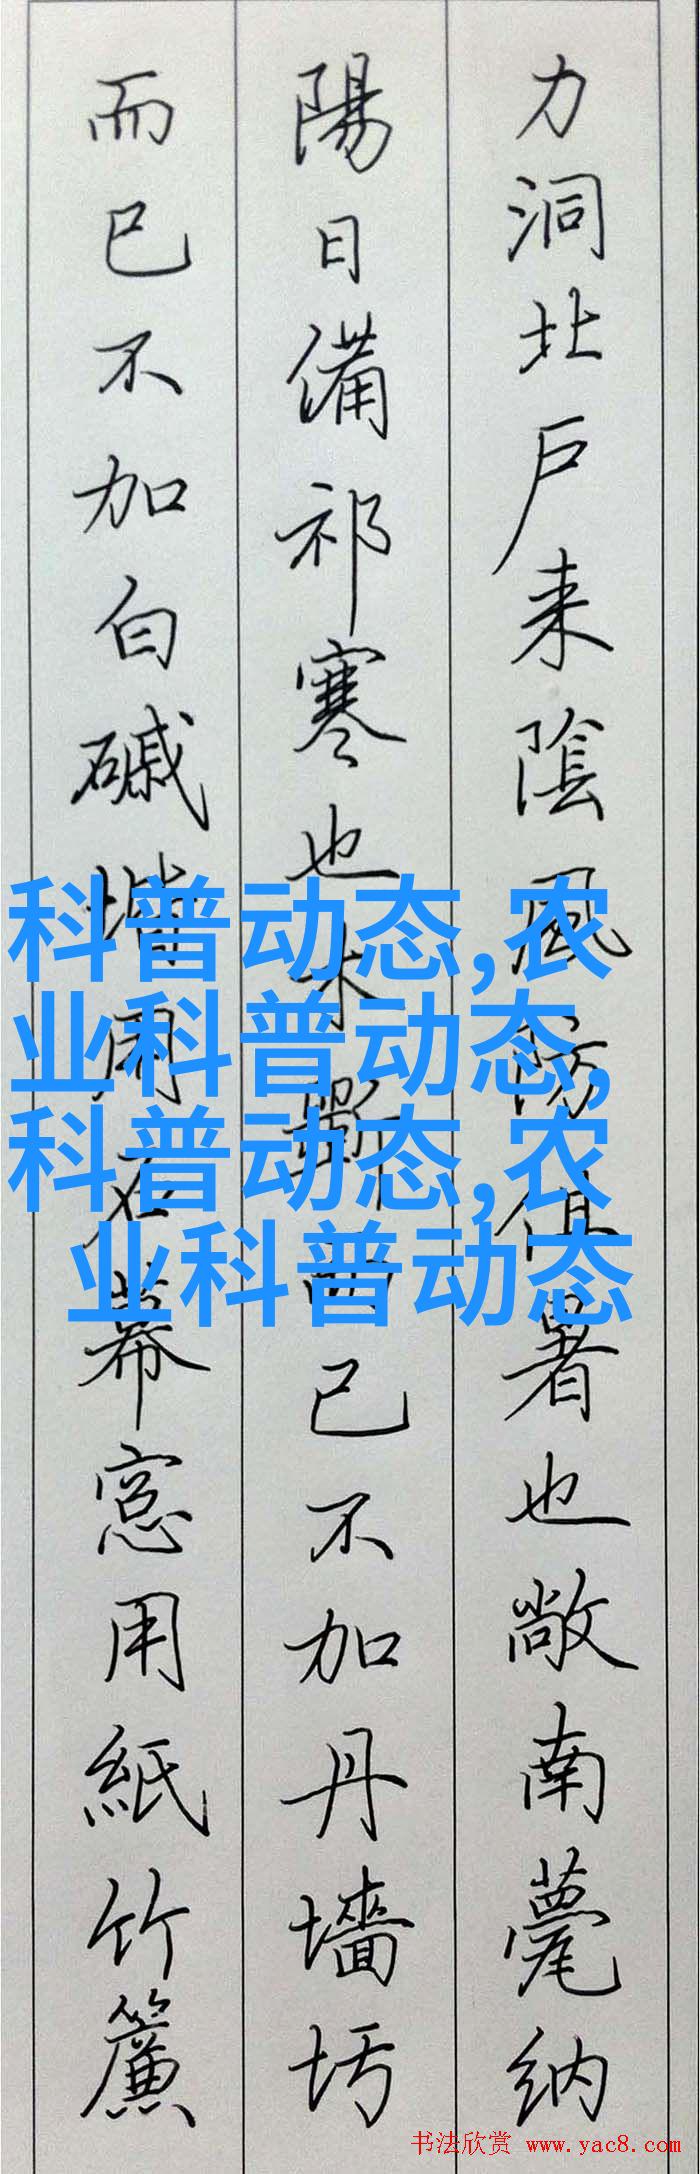 力洞北戶来陰風防徂暑也敞南甍納
陽日備祁寒也木斲而已不加丹墻圬
而已不加白磩堦用石幕窓用紙竹簾
科普动态,农
业科普动态,
科普动态,农
业科普动态
书法欣赏 www.yac8.com